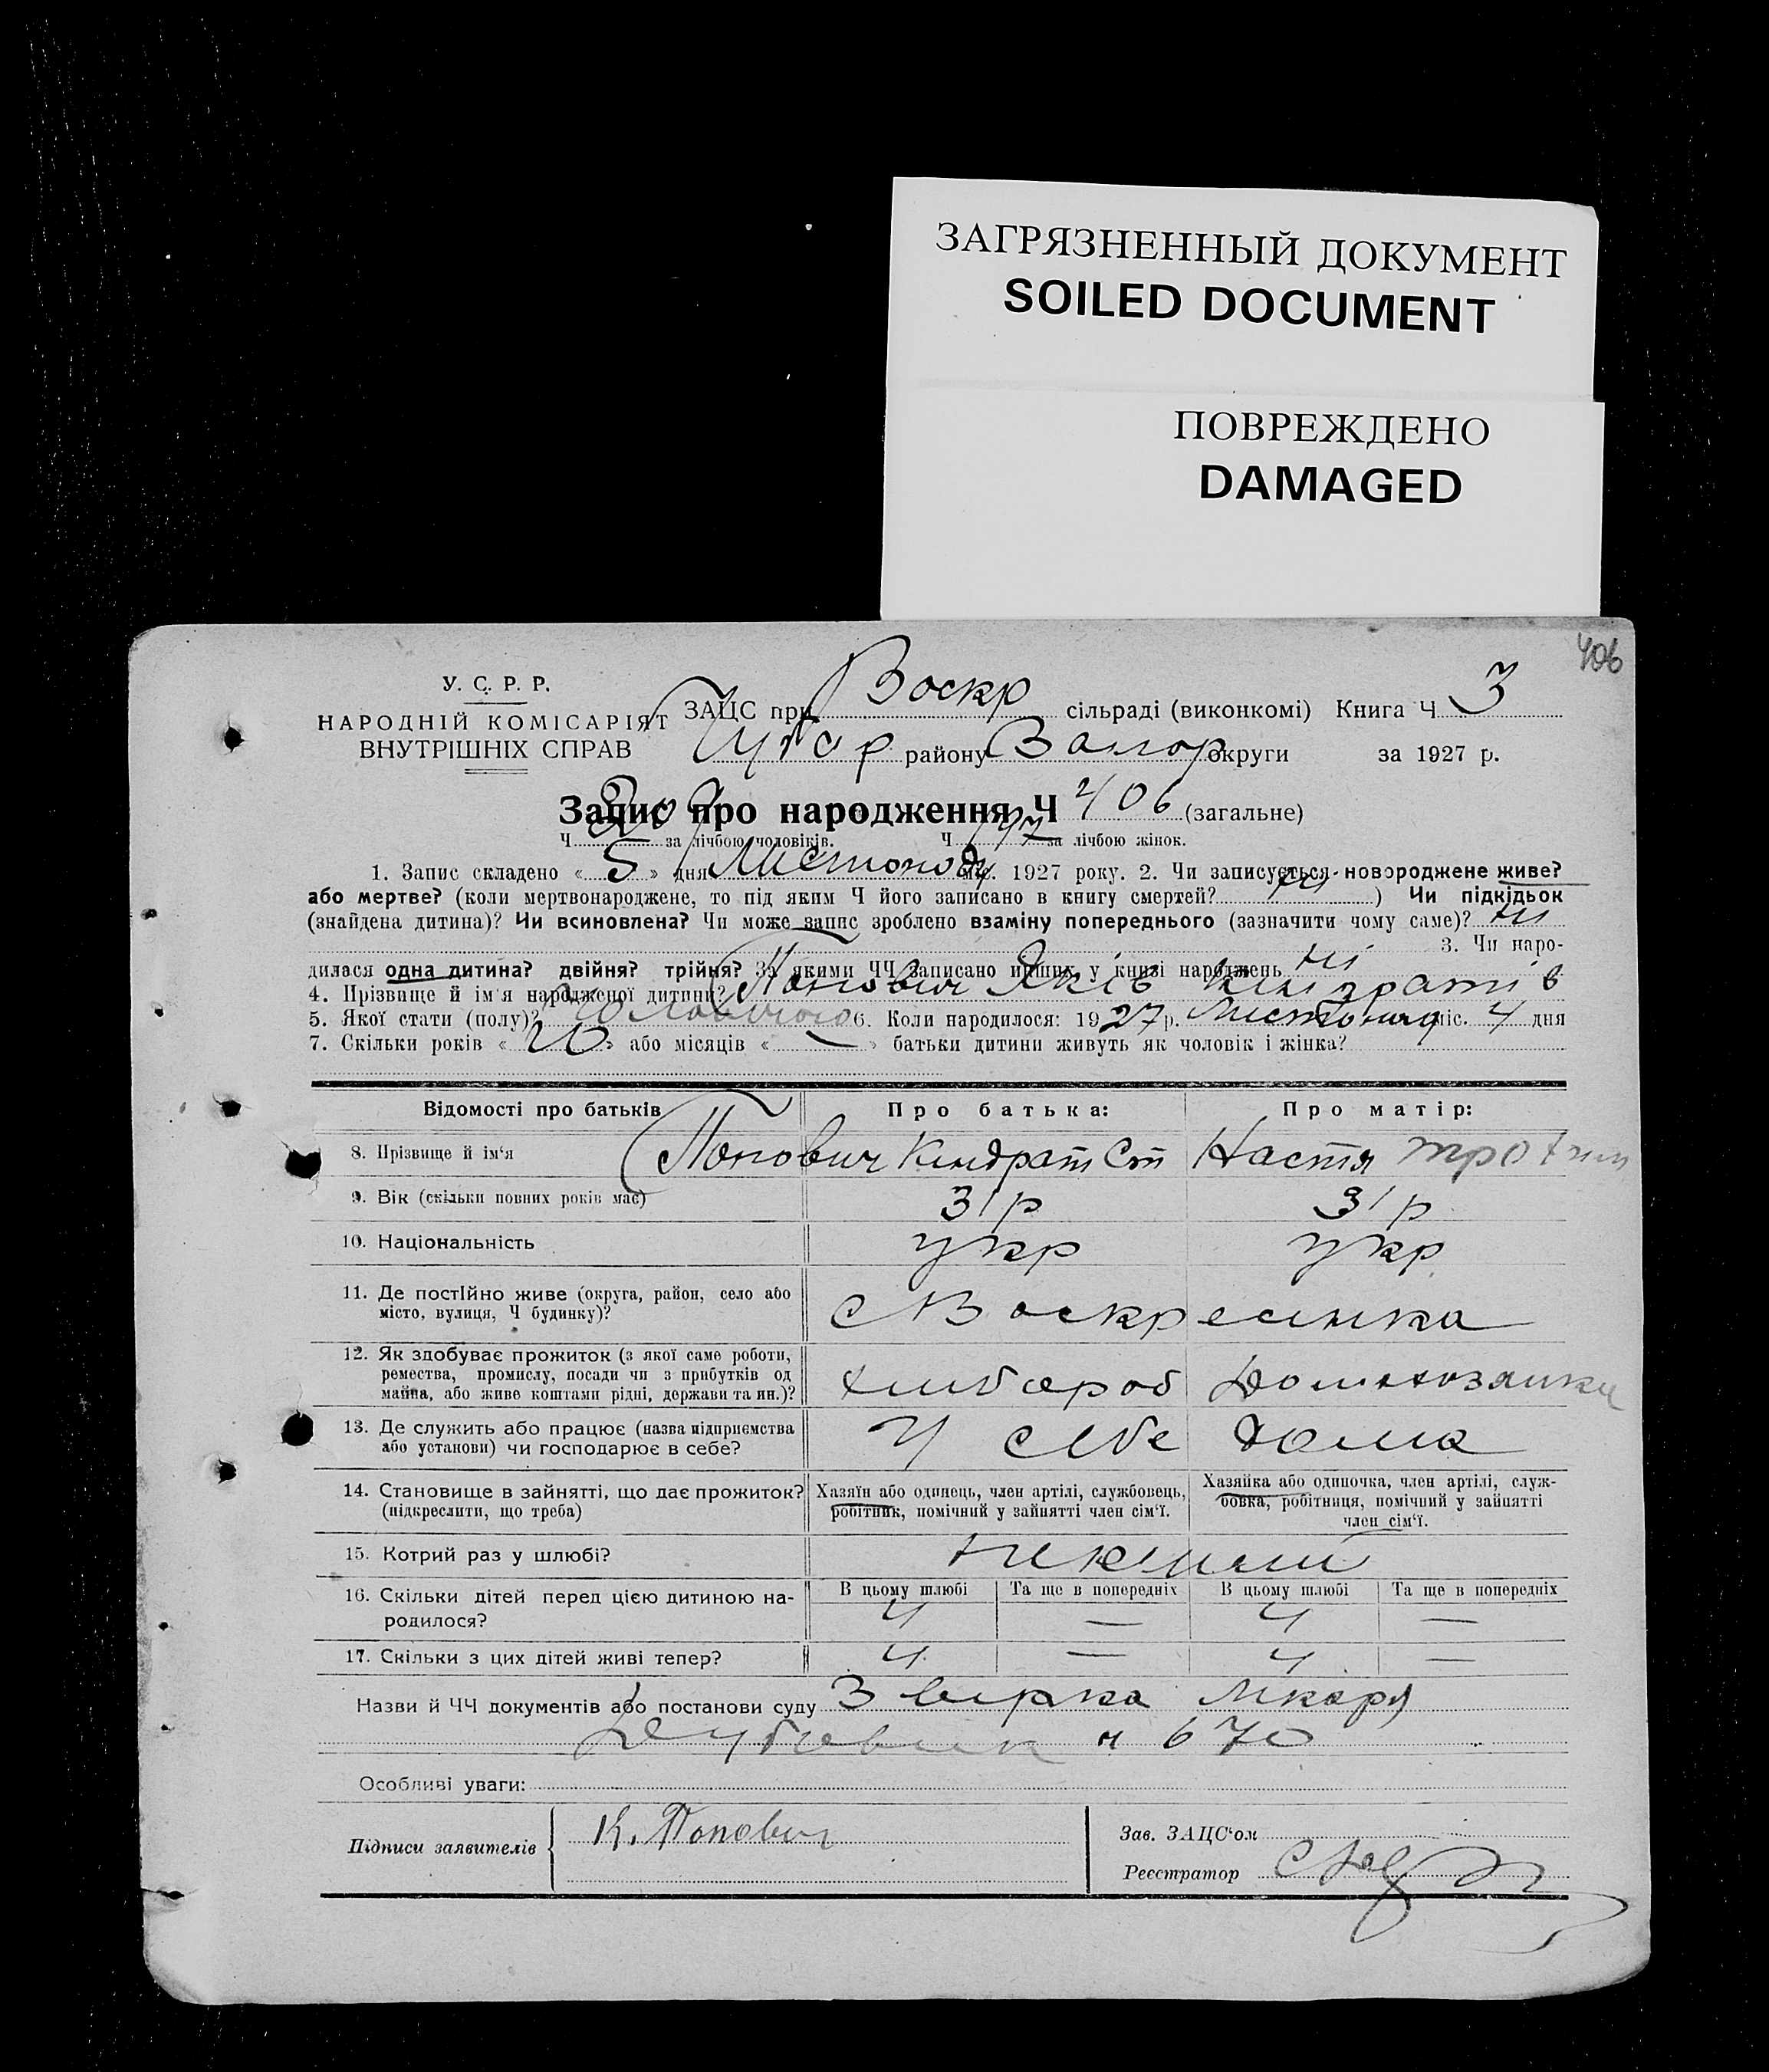 ЗАГРЯЗНЕННЫЙ ДОКУМЕНТ
SOILED DOCUMENT
ПОВРЕЖДЕНО
DAMAGED
406
У. С. Р. Р.
НАРОДНІЙ КОМІСАРІЯТ
ВНУТРІШНІХ СПРАВ
ЗАЦС при Воскр сільраді (виконкомі) Книга Ч 3
району Запор округи за 1927 р.
Запис про народження Ч 406 (загальне)
Ч за лічбою чоловіків. Ч 197 за лічбою жінок.
1. Запис складено « 5 » дня Листопаду міс. 1927 року. 2. Чи записується новороджене живе?
або мертве? (коли мертвонароджене, то під яким Ч його записано в книгу смертей? ні ) Чи підкідьок
(знайдена дитина)? Чи всиновлена? Чи може запис зроблено взаміну попереднього (зазначити чому саме)? ні
3. Чи наро-
дилася одна дитина? двійня? трійня? За якими ЧЧ записано инших у книзі народжень ні
4. Прізвище й ім'я народженої дитини? Попович Яків Кіндратів
5. Якої стати (полу)? 6. Коли народилося: 1927 р. Листопада міс. 4 дня
7. Скільки років « 10 » або місяців « — » батьки дитини живуть як чоловік і жінка?
Відомості про батьків Про батька: Про матір:
8. Прізвище й ім'я Попович Кіндрат Ст Настя
9. Вік (скільки повних років має) 31 р 31 р
10. Національність укр укр
11. Де постійно живе (округа, район, село або
місто, вулиця, Ч будинку)? с Воскресенка
12. Як здобуває прожиток (з якої саме роботи,
ремества, промислу, посади чи з прибутків од
майна, або живе коштами рідні, держави та ин.)? хлібороб Домохозяика
13. Де служить або працює (назва підприємства
або установи) чи господарює в себе? У себе дома
14. Становище в зайнятті, що дає прожиток?
(підкреслити, що треба)
Хазяїн або одинець, член артілі, службовець,
робітник, помічний у зайнятті член сім'ї.
Хазяйка або одиночка, член артілі, служ-
бовка, робітниця, помічний у зайнятті
член сім'ї.
15. Котрий раз у шлюбі?
16. Скільки дітей перед цією дитиною на-
родилося?
В цьому шлюбі Та ще в попередніх В цьому шлюбі Та ще в попередніх
4 — 4 —
17. Скільки з цих дітей живі тепер? 4 — 4 —
Назви й ЧЧ документів або постанови суду
ч 670
Особливі уваги:
Підписи заявителів К. Попович
Зав. ЗАЦС'ом
Реєстратор